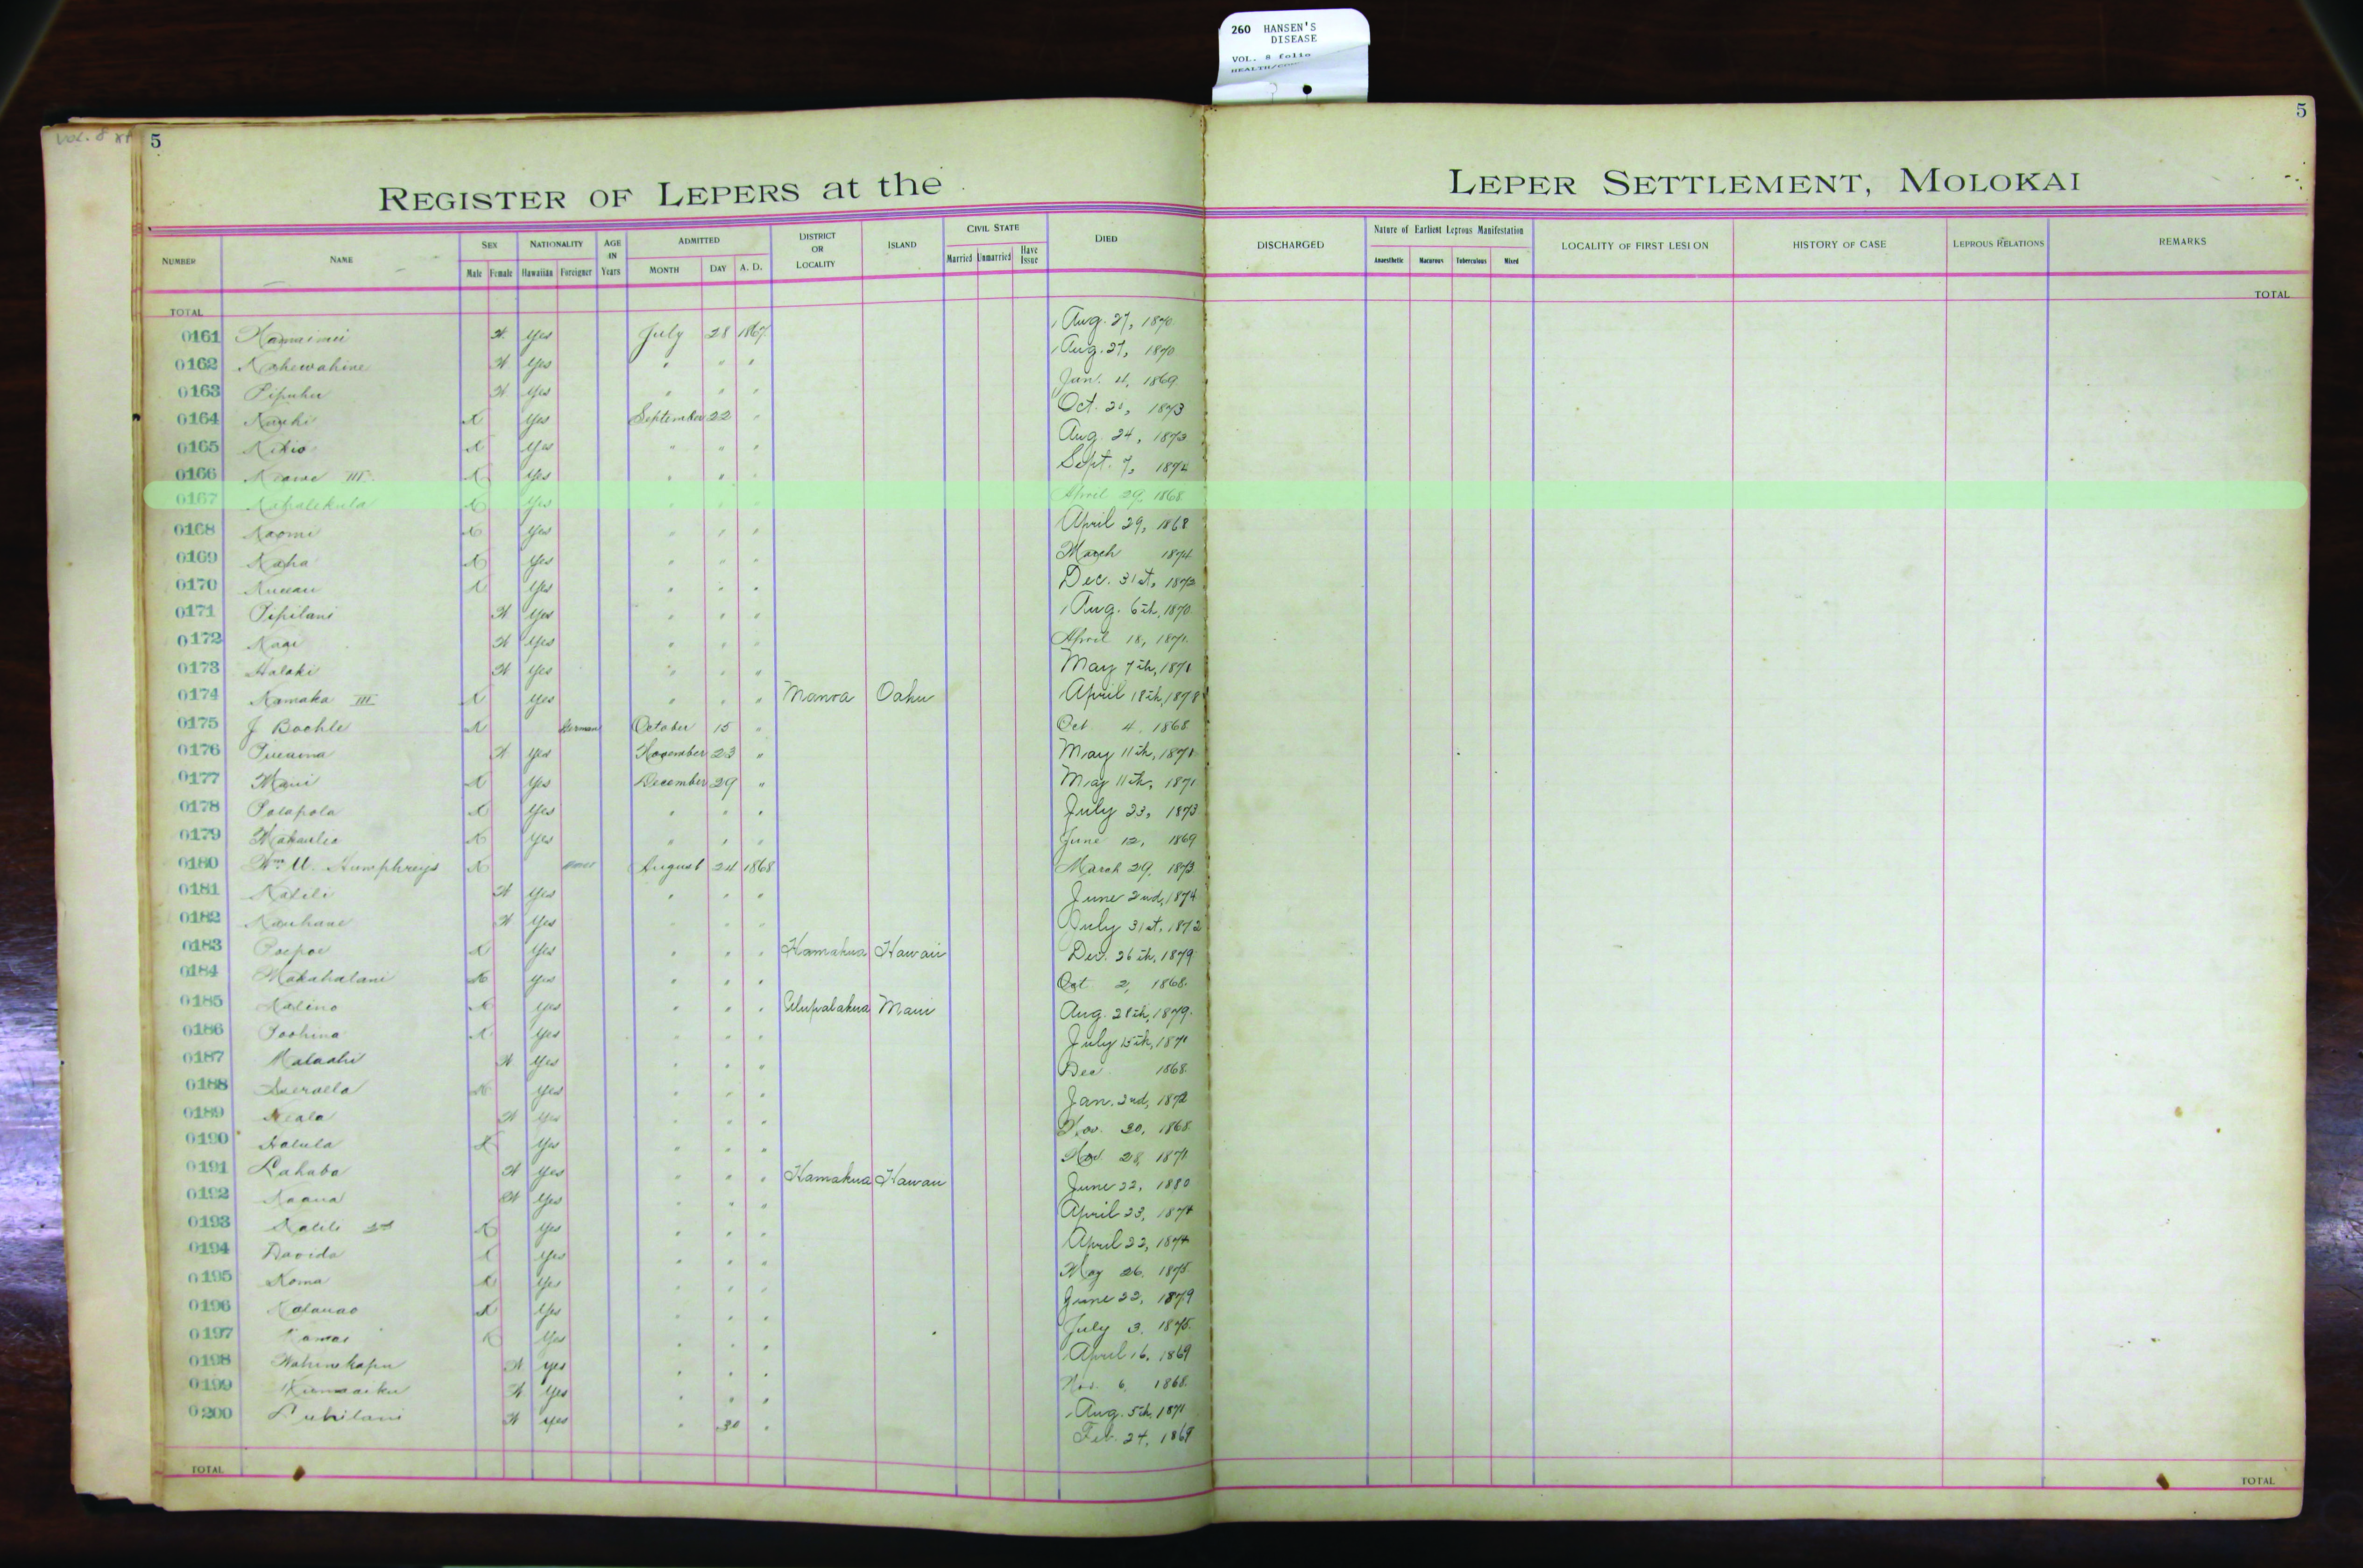 260 HANSEN'S
DISEASE
VOL. 8 folio
VOL. 8
5 5
REGISTER OF LEPERS at the LEPER SETTLEMENT, MOLOKAI
NUMBER NAME SEX Male Female NATIONALITY Hawaiian Foreigner AGE IN Years ADMITTED MONTH DAY A. D. DISTRICT OR LOCALITY ISLAND CIVIL STATE Married Unmarried Have Issue DIED DISCHARGED Nature of Earliest Leprous Manifestation Anaesthetic Macurous Tuberculous Mixed LOCALITY OF FIRST LESION HISTORY OF CASE LEPROUS RELATIONS REMARKS
TOTAL TOTAL
0161 W Yes July 28 1867 Aug. 27, 1870
0162 Kahewahine W Yes " " " Aug. 27, 1870
0163 Pipuhu W Yes " " " Jan. 4, 1869
0164 K Yes September 22 " Oct. 1873
0165 Kikio K Yes " " " Aug. 24, 1873
0166 Keawe III K Yes " " " Sept. 7, 1874
0167 Kahalekula K Yes " " " April 29, 1868
0168 Naomi K Yes " " " April 29, 1868
0169 Kaha K Yes " " " March 1874
0170 K Yes " " " Dec. 31st, 1873
0171 Pipilani W Yes " " " Aug. 6th, 1870
0172 W Yes " " " April 18, 1871
0173 Halaki W Yes " " " May 7th, 1871
0174 Kamaka III K Yes " " " Manoa Oahu April 18th, 1878
0175 J Bochle K German October 15 " Oct 4, 1868
0176 W Yes November 23 " May 11th, 1871
0177 Maui K Yes December 29 " May 11th, 1871
0178 Polapola K Yes " " " July 23, 1873
0179 K Yes " " " June 12, 1869
0180 Wm U. Humphreys K August 24 1868 March 29, 1873
0181 Kalili W Yes " " " June 2nd, 1874
0182 Kauhane W Yes " " " July 31st, 1872
0183 Poepoe K Yes " " " Hamakua Hawaii Dec. 26th, 1879
0184 Makahalani K Yes " " " Oct 2, 1868
0185 Kalino K Yes " " " Ulupalakua Maui Aug. 28th, 1879
0186 Poohina K Yes " " " July 15th, 1871
0187 Malaahi W Yes " " " Dec 1868
0188 K Yes " " " Jan. 2nd, 1872
0189 W Yes " " " Nov. 30, 1868
0190 Halula K Yes " " " Nov. 28, 1871
0191 Lahaba W Yes " " " Hamakua Hawaii June 22, 1880
0192 Kaaua W Yes " " " April 23, 1874
0193 Kalili 2nd K Yes " " " April 22, 1874
0194 Davida K Yes " " " May 26, 1875
0195 Koma K Yes " " " June 22, 1879
0196 Kalauao K Yes " " " July 3, 1875
0197 Kamai K Yes " " " April 16, 1869
0198 Wahinekapu W Yes " " " Nov. 6, 1868
0199 Kumaaiku W Yes " " " Aug. 5th, 1871
0200 Luhilani W Yes " 30 " Feb. 24, 1869
TOTAL TOTAL